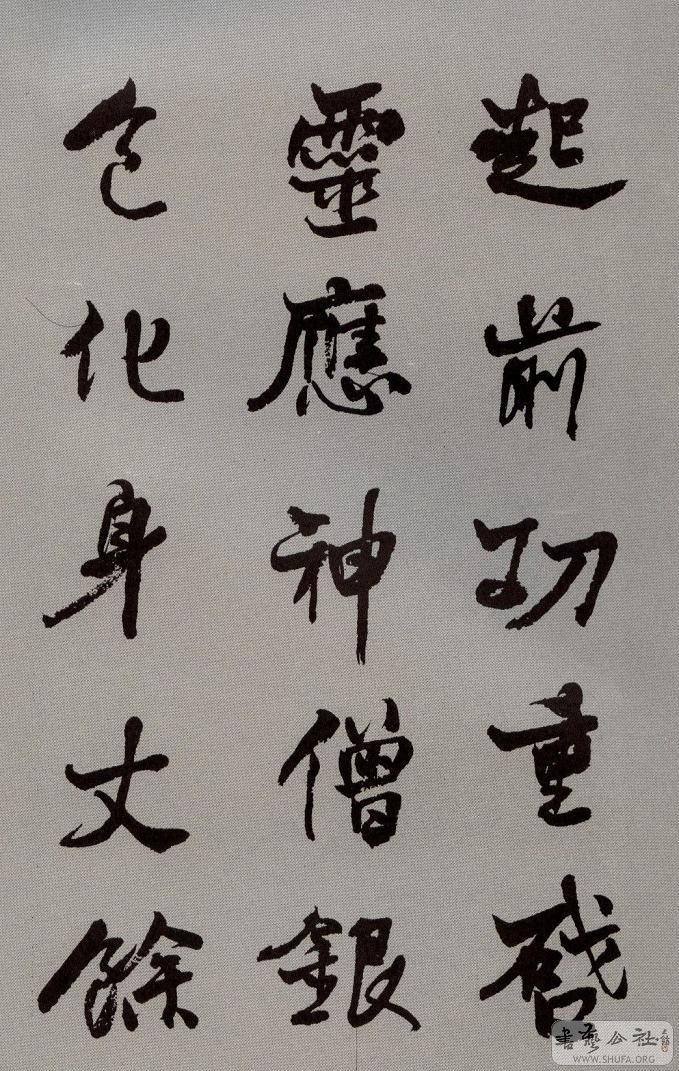 起前功重啓
靈應神僧銀
色化身丈餘
書藝公社
WWW.SHUFA.ORG